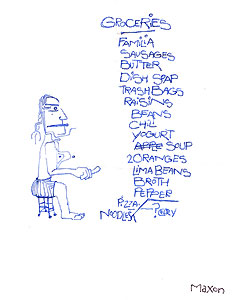 GROCERIES
FAMILIA
SAUSAGES
BUTTER
DISH SOAP
TRASH BAGS
RAISINS
BEANS
CHILI
YOGURT
APPLE SOUP
2 ORANGES
LIMA BEANS
BROTH
PEPPER
PIZZA
NOODLES
?
Maxon